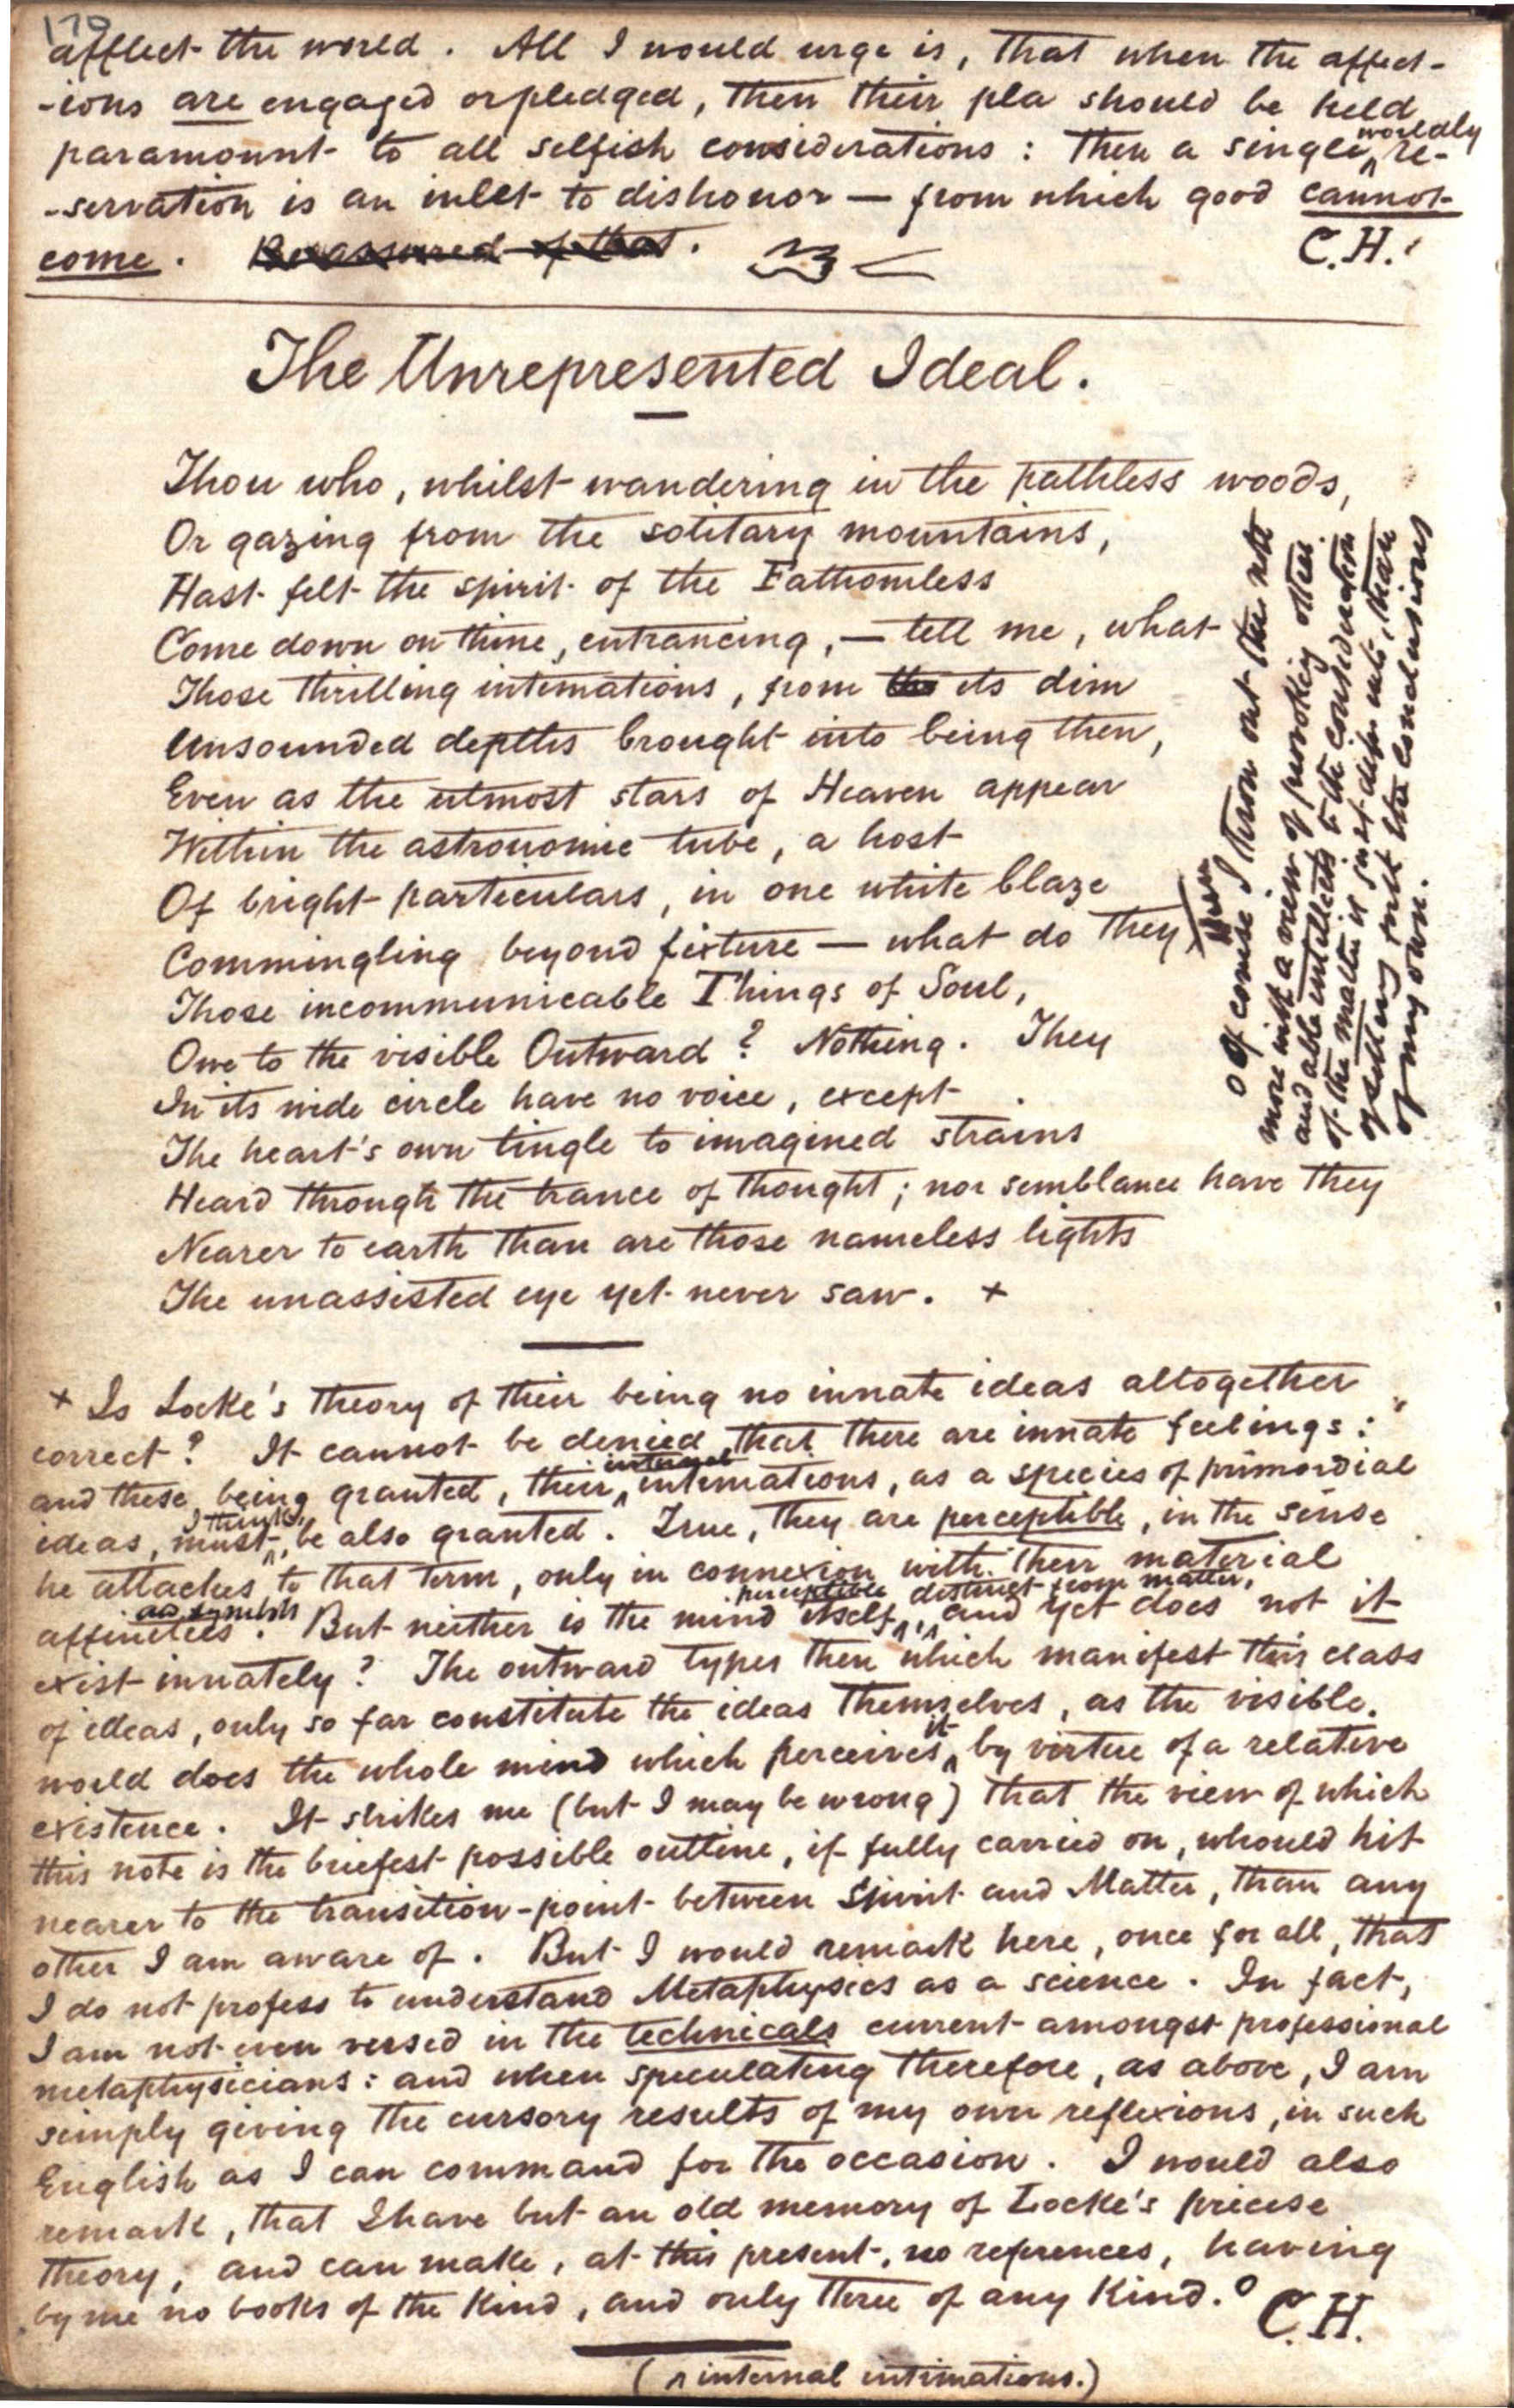 170
afflict the world. All I would urge is, that when the affect-
-ions are engaged or pledged, then their pla should be held
paramount to all selfish considerations: then a single worldly re-
-servation is an inlet to dishonor — from which good cannot
come. Be assured of that. C.H.
The Unrepresented Ideal.
Thou who, whilst wandering in the pathless woods,
Or gazing from the solitary mountains,
Hast felt the spirit of the Fathomless
Come down on thine, entrancing, — tell me, what
Those thrilling intimations, from the its dim
Unsounded depths brought into being then,
Even as the utmost stars of Heaven appear
Within the astronomic tube, a host
Of bright particulars, in one white blaze
Commingling beyond fixture — what do they
Those incommunicable Things of Soul,
Owe to the visible Outward? Nothing. They
In its wide circle have no voice, except
The heart's own tingle to imagined strains
Heard through the trance of thought; nor semblance have they
Nearer to earth than are those nameless lights
The unassisted eye yet never saw. +
o Of course I throw out this note
more with a view of provoking other
and able intellects to the consideration
of the matter, than
of setting just the conclusions
of my own.
+ Is Locke's theory of their being no innate ideas altogether
correct? It cannot be denied that there are innate feelings:
and these being granted, their internal intimations, as a species of primordial
ideas, must, I think, be also granted. True, they are perceptible, in the sense
he attaches to that term, only in connexion with their material
affinities as symbols. But neither is the mind itself perceptible distinct from matter, and yet does not it
exist innately? The outward types then which manifest this class
of ideas, only so far constitute the ideas themselves, as the visible
world does the whole mind which perceives it by virtue of a relative
existence. It strikes me (but I may be wrong) that the view of which
this note is the briefest possible outline, if fully carried on, whould hit
nearer to the transition-point between Spirit and Matter, than any
other I am aware of. But I would remark here, once for all, that
I do not profess to understand Metaphysics as a science. In fact,
I am not even versed in the technicals current amongst professional
metaphysicians: and when speculating therefore, as above, I am
simply giving the cursory results of my own reflexions, in such
English as I can command for the occasion. I would also
remark, that I have but an old memory of Locke's precise
theory; and can make, at this present, no references, having
by me no books of the kind, and only three of any kind. o C.H.
(^ internal intimations.)